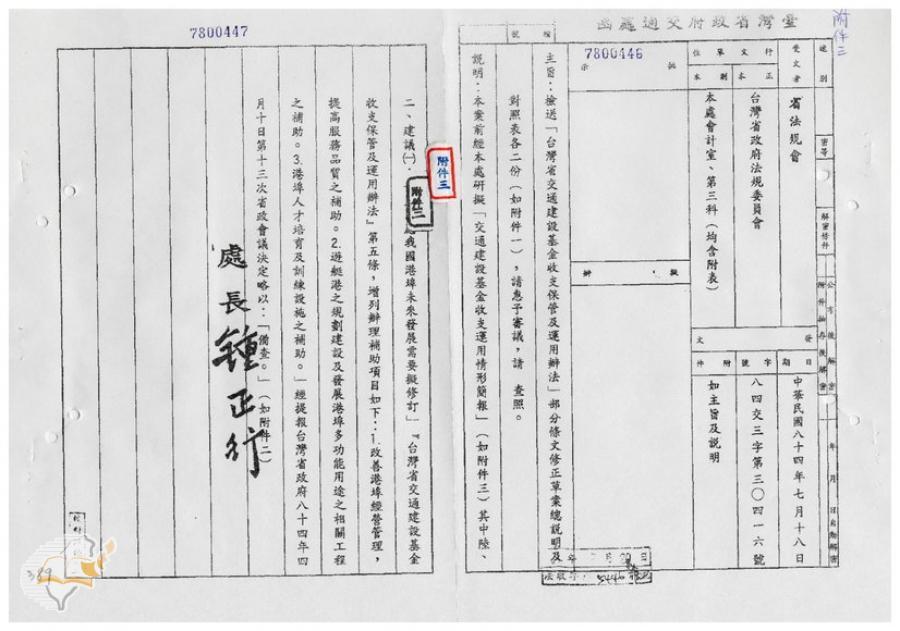 附件三
臺灣省政府交通處函
速別
密等
解密條件
公布後解密
附件抽存後解密
年 月 日自動解密
受文者
省法規會
行文單位
正本
台灣省政府法規委員會
副本
本處會計室、第三科(均含附表)
發文
日期
中華民國八十四年七月十八日
字號
八四交三字第三〇四一六號
附件
如主旨及說明
7800446
批示
擬辦
檔號
主旨:檢送「台灣省交通建設基金收支保管及運用辦法」部分條文修正草案總說明及
對照表各二份(如附件一),請惠予審議,請 查照。
說明:本案前經本處研擬「交通建設基金收支運用情形簡報」(如附件三)其中陸、
附件三
附件二
7800447
二、建議㈠.我國港埠未來發展需要擬修訂」『台灣省交通建設基金
收支保管及運用辦法』第五條,增列辦理補助項目如下:1.改善港埠經營管理,
提高服務品質之補助。2.遊艇港之規劃建設及發展港埠多功能用途之相關工程
之補助。3.港埠人才培育及訓練設施之補助。」經提報台灣省政府八十四年四
月十日第十三次省政會議決定略以:「備查。」(如附件二)
處長鍾正行
389